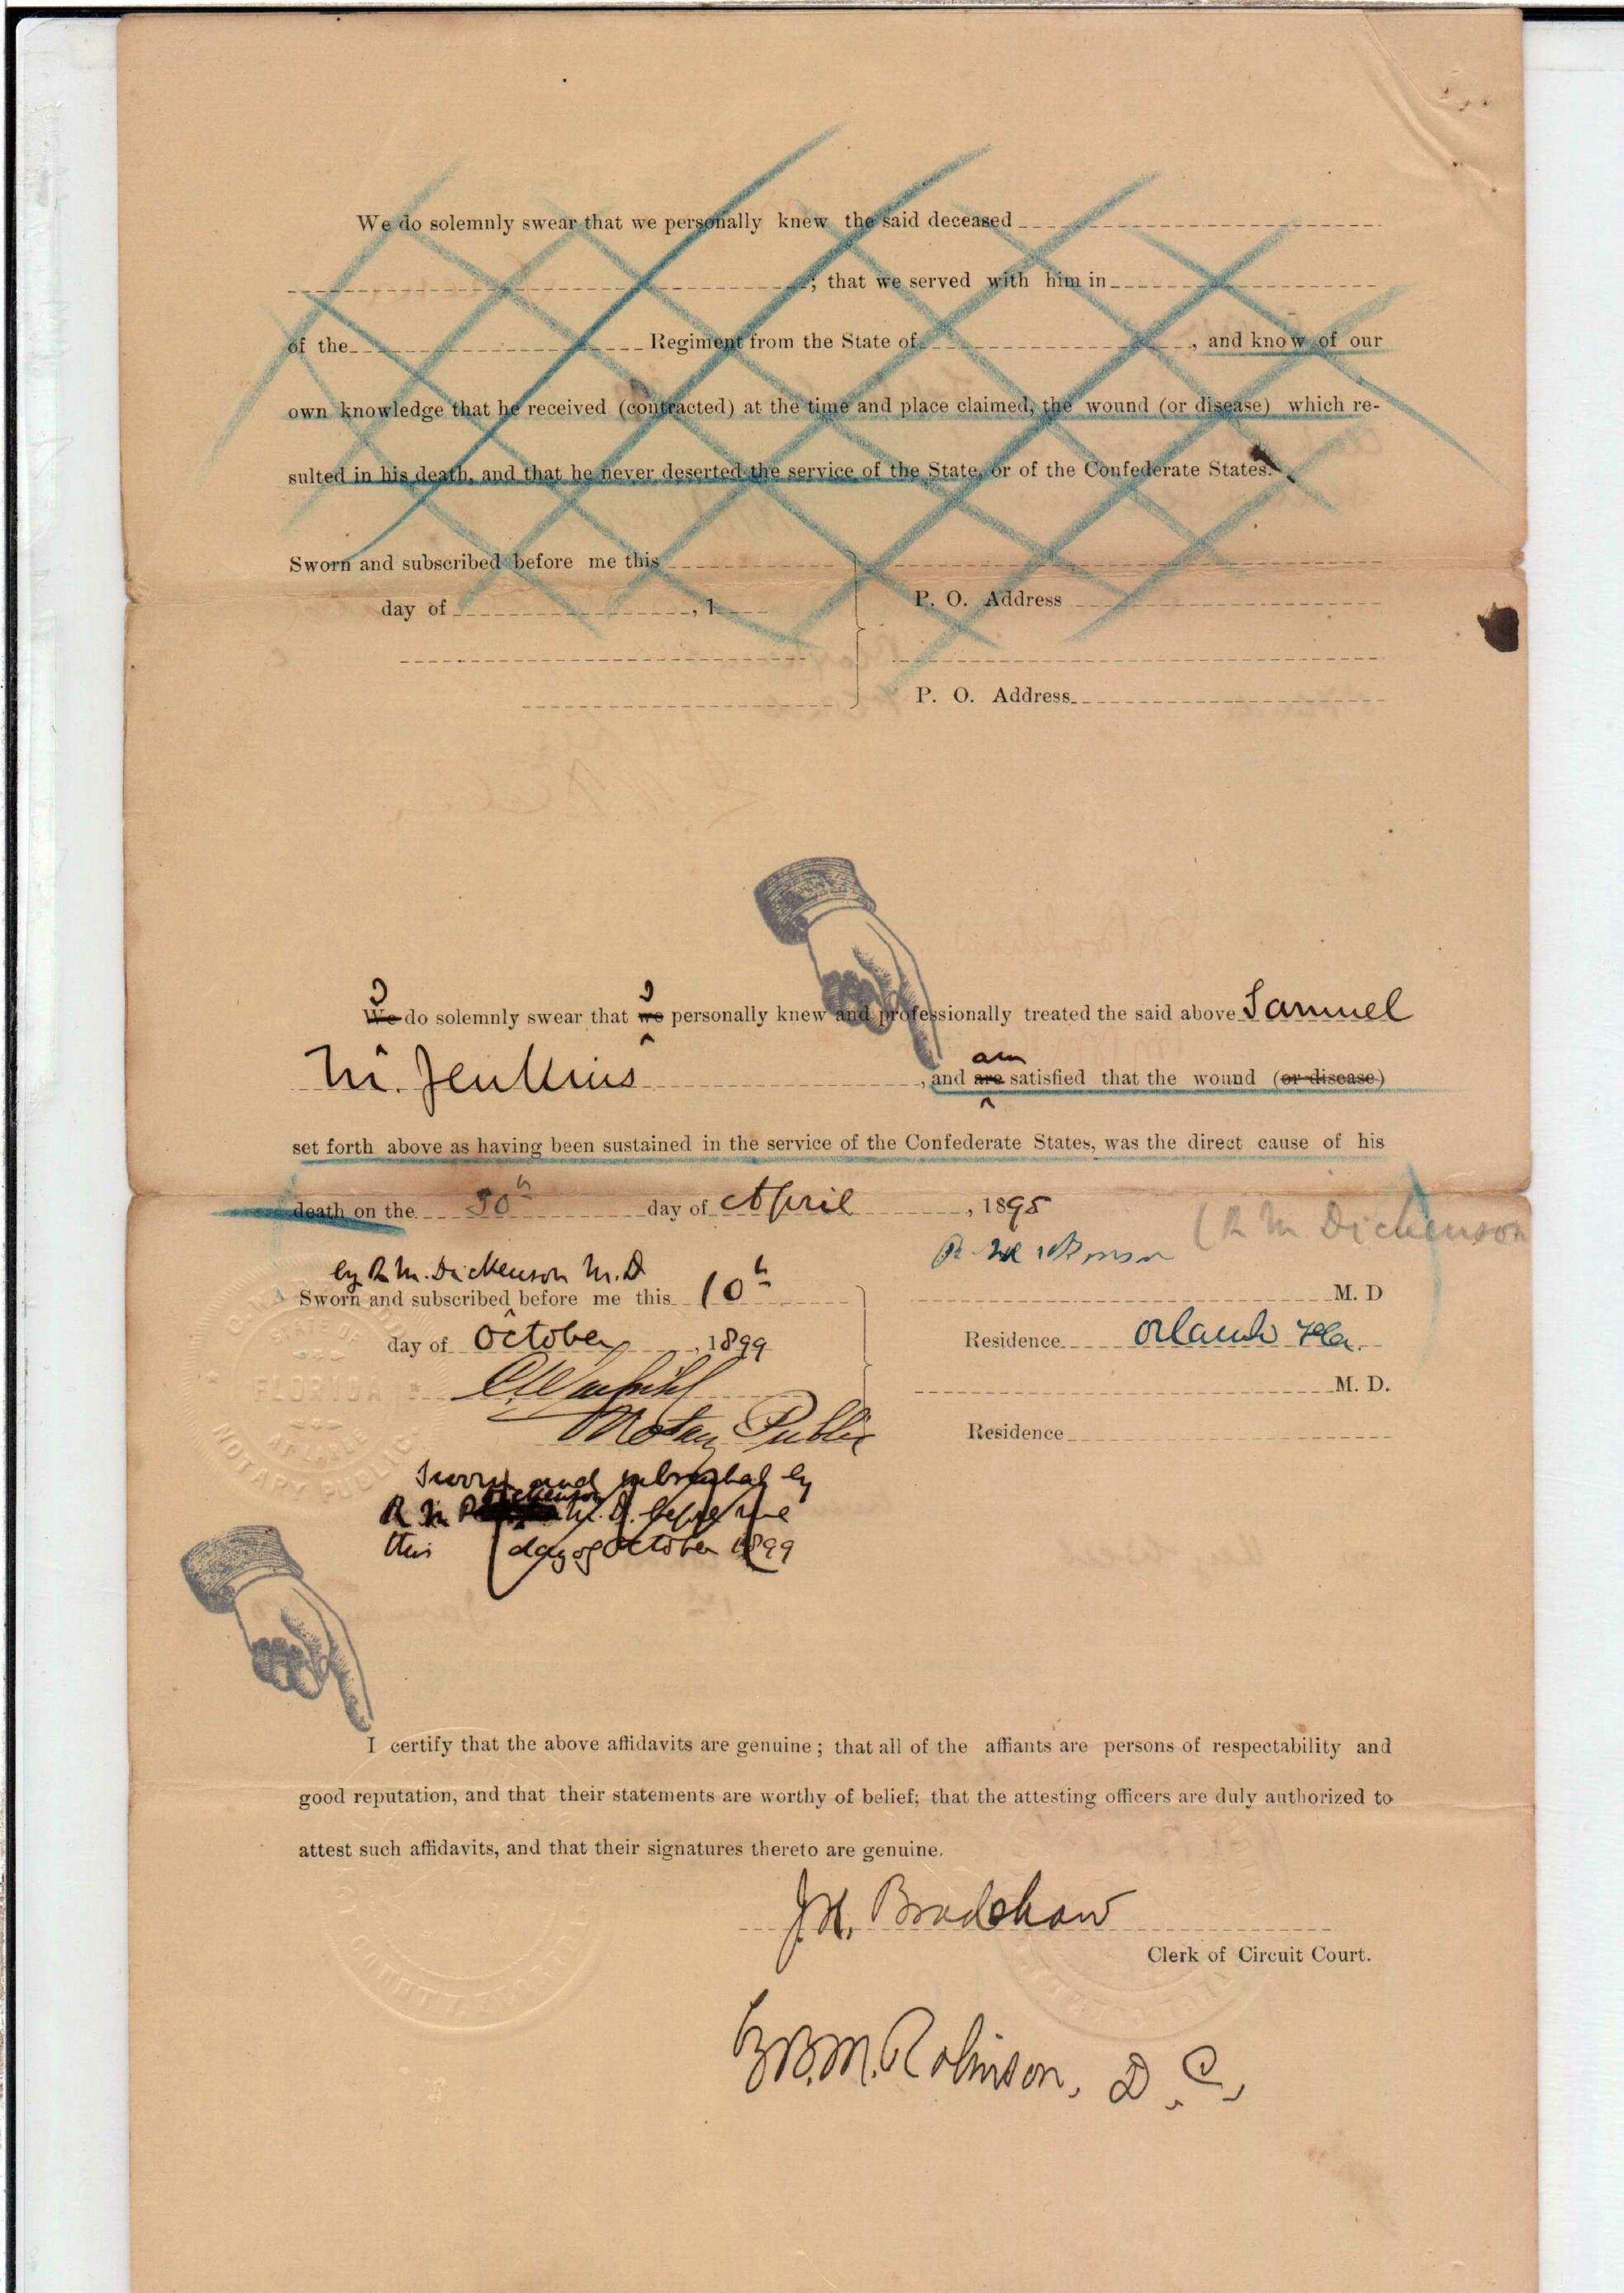 We do solemnly swear that we personally knew the said deceased
; that we served with him in
of the Regiment from the State of , and know of our
own knowledge that he received (contracted) at the time and place claimed, the wound (or disease) which re-
sulted in his death, and that he never deserted the service of the State, or of the Confederate States.
Sworn and subscribed before me this
day of , 1
P. O. Address
P. O. Address
I I
We do solemnly swear that we personally knew and professionally treated the said above Samuel
am
M. Jenkins , and are satisfied that the wound (or disease)
set forth above as having been sustained in the service of the Confederate States, was the direct cause of his
death on the 30th day of April , 1895
(R M Dickenson
by R. M. Dickenson M.D
Sworn and subscribed before me this 10th
day of October , 1899
Notary Public
M. D
Residence Orlando Fla.
M. D.
Residence
STATE OF
FLORIDA
AT LARGE
NOTARY PUBLIC
Sworn and subscribed by
Dickenson
R M M. D. before me
this day of October 1899
I certify that the above affidavits are genuine; that all of the affiants are persons of respectability and
good reputation, and that their statements are worthy of belief; that the attesting officers are duly authorized to
attest such affidavits, and that their signatures thereto are genuine.
J. H. Bradshaw
Clerk of Circuit Court.
By B. M. Robinson, D. C.